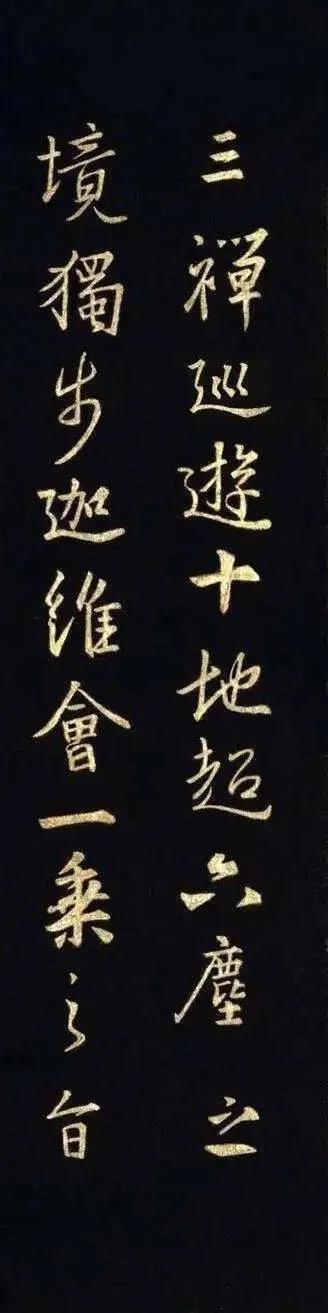 三禪巡遊十地超六塵之
境獨步迦維會一乘之旨